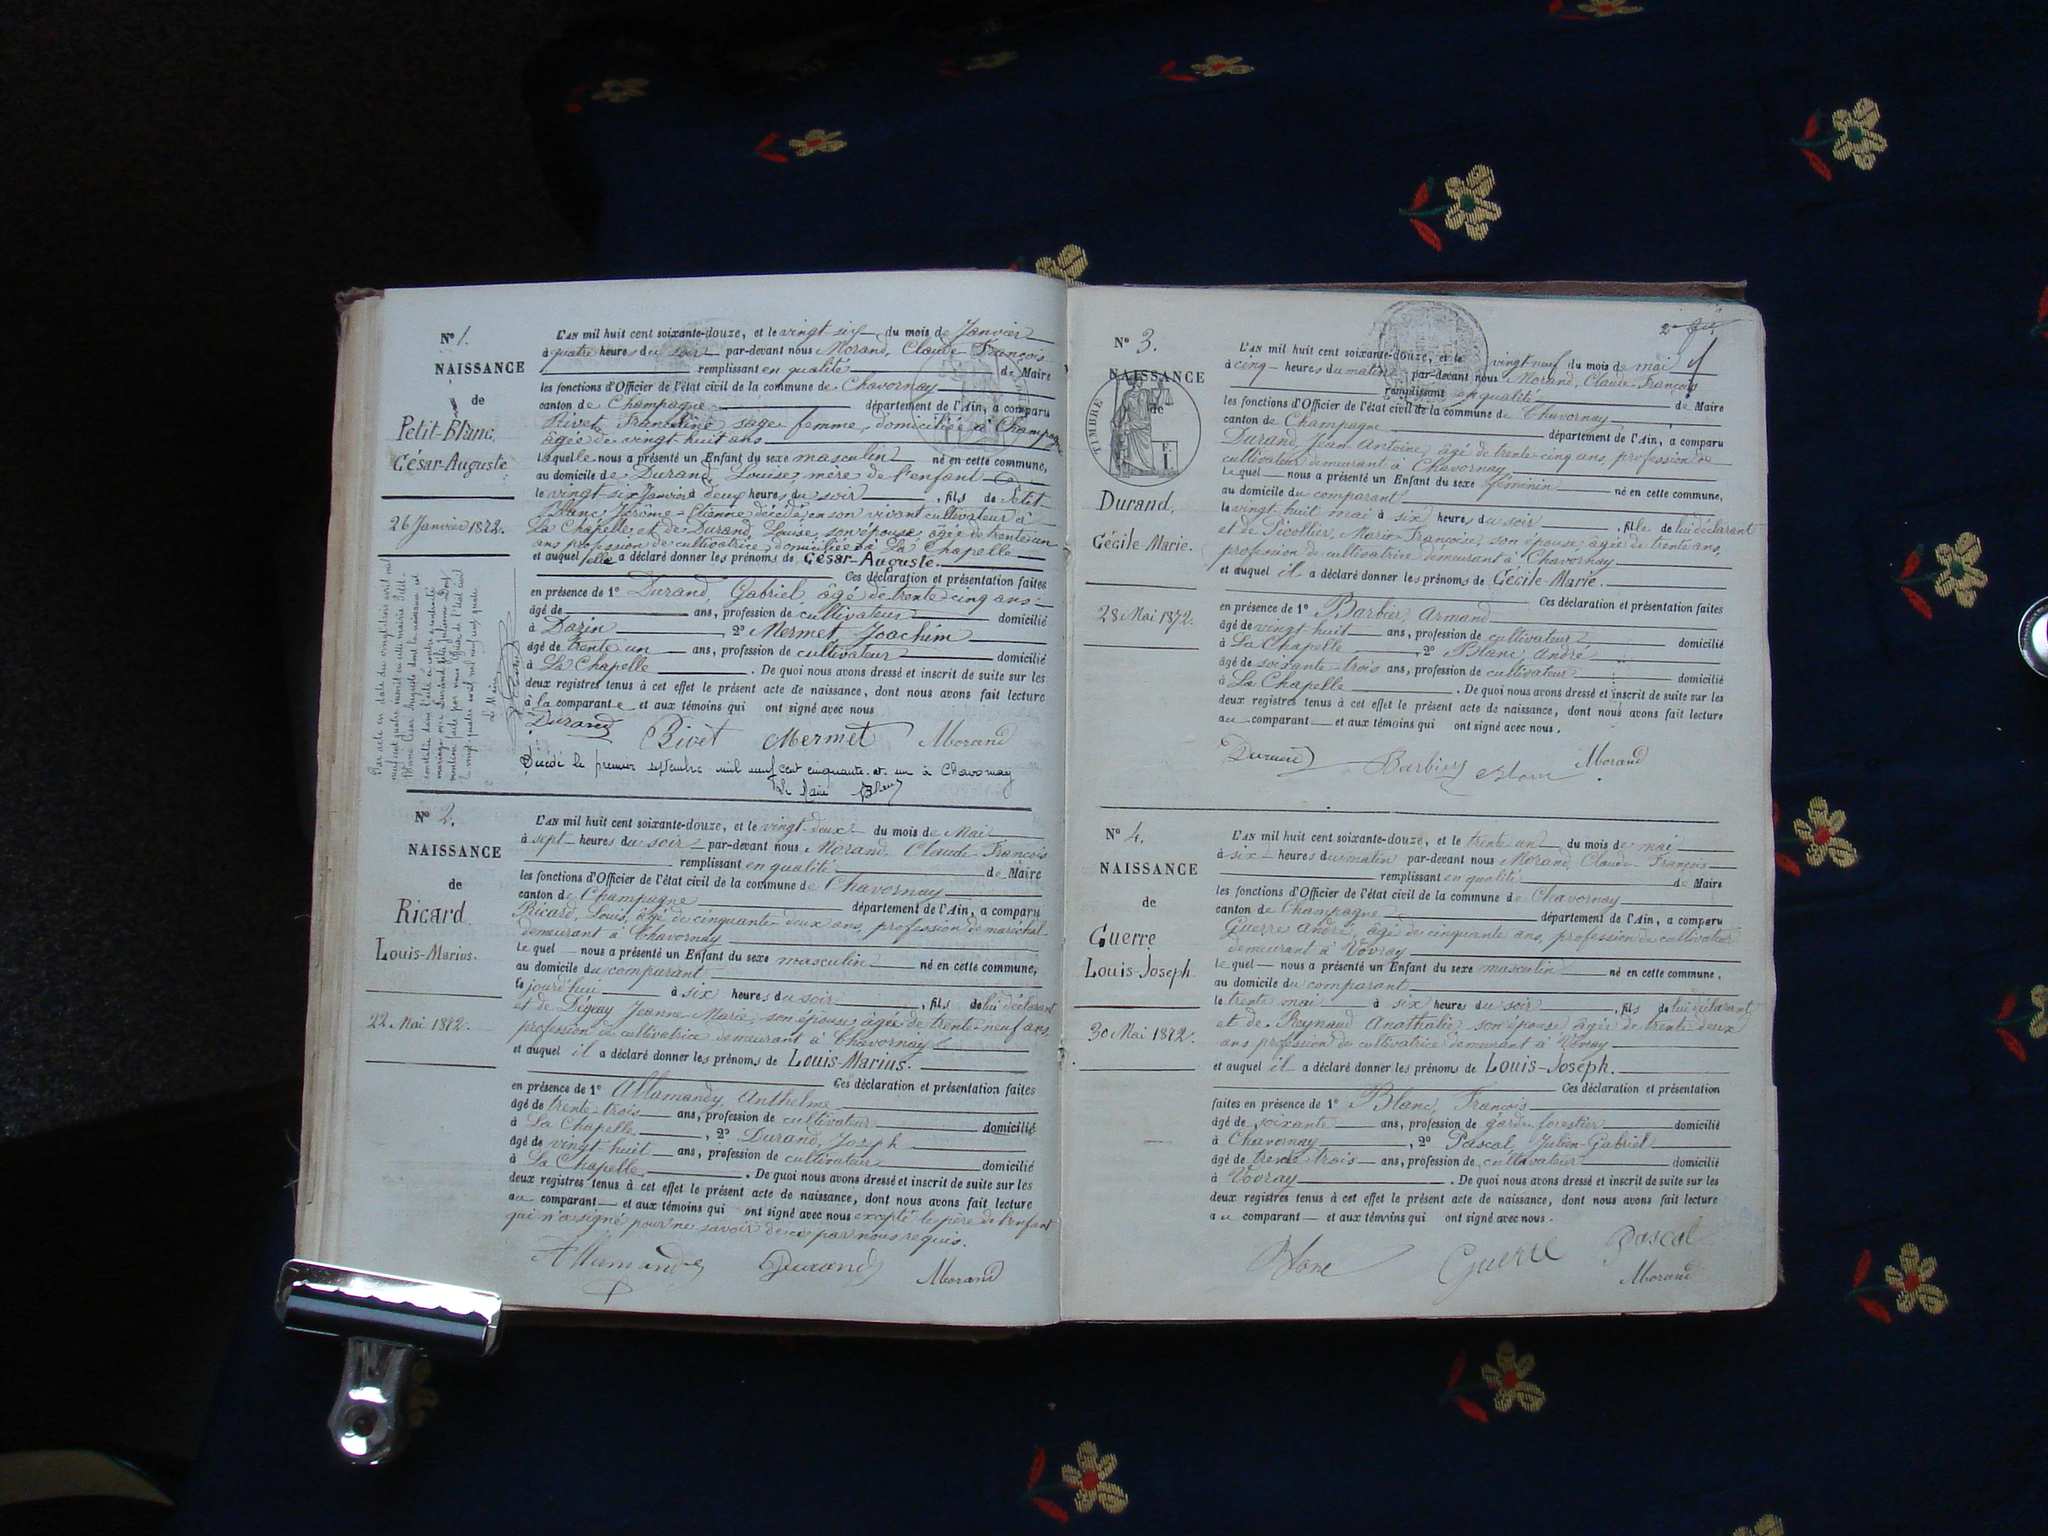 N° 1.
NAISSANCE
de
Petit-Blanc,
César-Auguste
26 Janvier 1872.
L'AN mil huit cent soixante-douze, et le vingt six du mois de Janvier
à quatre heures du soir par-devant nous Morand, Claude François
remplissant en qualité de Maire
les fonctions d'Officier de l'état civil de la commune de Chavornay
canton de Champagne département de l'Ain, a comparu
Rivet, Francéline, sage femme, domiciliée à Champagne
âgée de vingt huit ans
laquelle nous a présenté un Enfant du sexe masculin né en cette commune,
au domicile de Durand, Louise, mère de l'enfant
le vingt-six Janvier à deux heures du soir, fils de Petit-
Blanc, Jérôme-Etienne décédé, en son vivant cultivateur à
La Chapelle, et de Durand, Louise, son épouse, âgée de trente un
ans profession de cultivatrice, domiciliée à La Chapelle
et auquel elle a déclaré donner les prénoms de César-Auguste.
Ces déclaration et présentation faites
en présence de 1° Durand, Gabriel, âgé de trente-cinq ans
âgé de ans, profession de cultivateur domicilié
à Dazin, 2° Mermet Joachim
âgé de trente un ans, profession de cultivateur domicilié
à La Chapelle. De quoi nous avons dressé et inscrit de suite sur les
deux registres tenus à cet effet le présent acte de naissance, dont nous avons fait lecture
à la comparante et aux témoins qui ont signé avec nous
Durand Rivet Mermet Morand
Décédé le premier septembre mil neuf cent cinquante-et-un à Chavornay
Le Maire
N° 2.
NAISSANCE
de
Ricard
Louis-Marius.
22 Mai 1872.
L'AN mil huit cent soixante-douze, et le vingt-deux du mois de Mai
à sept heures du soir par-devant nous Morand, Claude-François
remplissant en qualité de Maire
les fonctions d'Officier de l'état civil de la commune de Chavornay
canton de Champagne département de l'Ain, a comparu
Ricard, Louis, âgé de cinquante-deux ans, profession de maréchal
demeurant à Chavornay
lequel nous a présenté un Enfant du sexe masculin né en cette commune,
au domicile du comparant
le jourd'hui à six heures du soir, fils de lui déclarant
et de Jeanne-Marie, son épouse, âgée de trente-neuf ans,
profession de cultivatrice demeurant à Chavornay
et auquel il a déclaré donner les prénoms de Louis-Marius.
Ces déclaration et présentation faites
en présence de 1° Allamandy, Anthelme
âgé de trente-trois ans, profession de cultivateur domicilié
à La Chapelle, 2° Durand, Joseph
âgé de vingt huit ans, profession de cultivateur domicilié
à La Chapelle. De quoi nous avons dressé et inscrit de suite sur les
deux registres tenus à cet effet le présent acte de naissance, dont nous avons fait lecture
au comparant et aux témoins qui ont signé avec nous excepté le père de l'enfant
qui n'a signé pour ne savoir de ce par nous requis.
Allamandy Durand Morand
N° 3.
NAISSANCE
de
TIMBRE
Durand,
Cécile-Marie.
28 Mai 1872.
L'AN mil huit cent soixante-douze, et le vingt-neuf du mois de mai
à cinq heures du matin par-devant nous Morand, Claude-François
remplissant en qualité de Maire
les fonctions d'Officier de l'état civil de la commune de Chavornay
canton de Champagne département de l'Ain, a comparu
Durand Jean Antoine, âgé de trente-cinq ans, profession de
cultivateur demeurant à Chavornay
lequel nous a présenté un Enfant du sexe féminin né en cette commune,
au domicile du comparant
le vingt huit mai à six heures du soir, fille de lui déclarant
et de Picollier, Marie-Françoise, son épouse, âgée de trente ans,
profession de cultivatrice demeurant à Chavornay
et auquel il a déclaré donner les prénoms de Cécile-Marie.
Ces déclaration et présentation faites
en présence de 1° Barbier, Armand
âgé de vingt huit ans, profession de cultivateur domicilié
à La Chapelle, 2° Blanc, André
âgé de soixante-trois ans, profession de cultivateur domicilié
à La Chapelle. De quoi nous avons dressé et inscrit de suite sur les
deux registres tenus à cet effet le présent acte de naissance, dont nous avons fait lecture
au comparant et aux témoins qui ont signé avec nous.
Durand Barbier Blanc Morand
N° 4.
NAISSANCE
de
Guerre
Louis-Joseph
30 Mai 1872.
L'AN mil huit cent soixante-douze, et le trente un du mois de mai
à six heures du matin par-devant nous Morand, Claude-François
remplissant en qualité de Maire
les fonctions d'Officier de l'état civil de la commune de Chavornay
canton de Champagne département de l'Ain, a comparu
Guerre André, âgé de cinquante ans, profession de cultivateur
demeurant à Vovray
lequel nous a présenté un Enfant du sexe masculin né en cette commune,
au domicile du comparant
le trente mai à six heures du soir, fils de lui déclarant
et de Reynaud Anathalie, son épouse, âgée de trente deux
ans profession de cultivatrice demeurant à Vovray
et auquel il a déclaré donner les prénoms de Louis-Joseph.
Ces déclaration et présentation
faites en présence de 1° Blanc, François
âgé de soixante ans, profession de garde forestier domicilié
à Chavornay, 2° Pascal, Julien-Gabriel
âgé de trente trois ans, profession de cultivateur domicilié
à Vovray. De quoi nous avons dressé et inscrit de suite sur les
deux registres tenus à cet effet le présent acte de naissance, dont nous avons fait lecture
au comparant et aux témoins qui ont signé avec nous.
Blanc Guerre Pascal
Morand